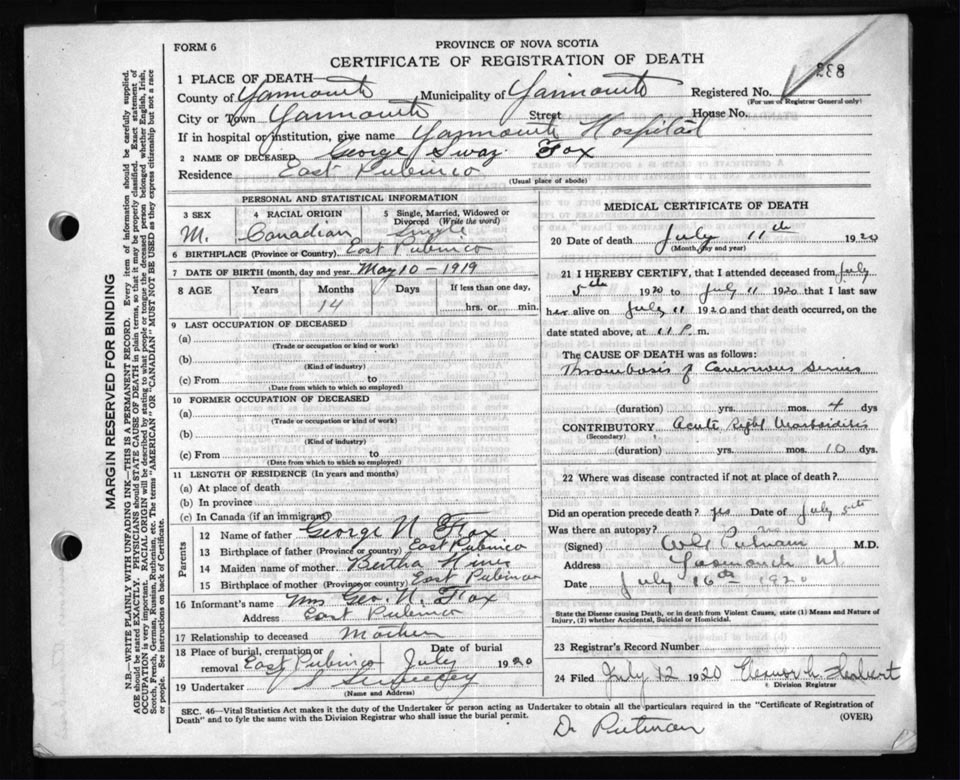 FORM 6
PROVINCE OF NOVA SCOTIA
CERTIFICATE OF REGISTRATION OF DEATH
832
1 PLACE OF DEATH—
County of Yarmouth Municipality of Yarmouth Registered No.
(For use of Registrar General only)
City or Town Yarmouth Street House No.
If in hospital or institution, give name Yarmouth Hospital
2 NAME OF DECEASED George Swaz Fox
Residence East Pubnico
(Usual place of abode)
PERSONAL AND STATISTICAL INFORMATION
3 SEX 4 RACIAL ORIGIN 5 Single, Married, Widowed or Divorced (Write the word)
M. Canadian Single
6 BIRTHPLACE (Province or Country) East Pubnico
7 DATE OF BIRTH (month, day and year) May 10 - 1919
8 AGE Years Months Days If less than one day,
14 hrs. or min.
9 LAST OCCUPATION OF DECEASED
(a)
(Trade or occupation or kind or work)
(b)
(Kind of industry)
(c) From to
(Date from which to which so employed)
10 FORMER OCCUPATION OF DECEASED
(a)
(Trade or occupation or kind of work)
(b)
(Kind of industry)
(c) From to
(Date from which to which so employed)
11 LENGTH OF RESIDENCE (In years and months)
(a) At place of death
(b) In province
(c) In Canada (if an immigrant)
Parents
12 Name of father George N. Fox
13 Birthplace of father (Province or country) East Pubnico
14 Maiden name of mother Bertha
15 Birthplace of mother (Province or country) East Pubnico
16 Informant's name Mrs Geo. N. Fox
Address East Pubnico
17 Relationship to deceased Mother
18 Place of burial, cremation or removal East Pubnico Date of burial July 1920
19 Undertaker V S Sweeney
(Name and Address)
MEDICAL CERTIFICATE OF DEATH
20 Date of death July 11th 1920
(Month, day and year)
21 I HEREBY CERTIFY, that I attended deceased from July
5th 1920 to July 11 1920 that I last saw
her alive on July 11 1920 and that death occurred, on the
date stated above, at 11 P. m.
The CAUSE OF DEATH was as follows:
Thrombosis of Cavernous Sinus
(duration) yrs. mos. 4 dys
CONTRIBUTORY Acute Right Mastoiditis
(Secondary)
(duration) yrs. mos. 10 dys.
22 Where was disease contracted if not at place of death?
Did an operation precede death? yes Date of July 5th
Was there an autopsy? no
(Signed) Putnam M.D.
Address Yarmouth N.
Date July 16th 1920
State the Disease causing Death, or in death from Violent Causes, state (1) Means and Nature of
Injury, (2) whether Accidental, Suicidal or Homicidal.
23 Registrar's Record Number
24 Filed July 12 1920 Herbert
Division Registrar
SEC. 46—Vital Statistics Act makes it the duty of the Undertaker or person acting as Undertaker to obtain all the particulars required in the "Certificate of Registration of
Death" and to fyle the same with the Division Registrar who shall issue the burial permit. (OVER)
Dr Putman
MARGIN RESERVED FOR BINDING
N.B.—WRITE PLAINLY WITH UNFADING INK—THIS IS A PERMANENT RECORD. Every item of information should be carefully supplied.
AGE should be stated EXACTLY. PHYSICIANS should STATE CAUSE OF DEATH in plain terms, so that it may be properly classified. Exact statement of
OCCUPATION is very important. RACIAL ORIGIN will be described by stating to what people or tongue the deceased person belonged whether English, Irish,
Scotch, French, German, Russian, Ruthenian, etc. The terms "AMERICAN" OR "CANADIAN" MUST NOT BE USED as they express citizenship but not a race
or people. See instructions on back of Certificate.